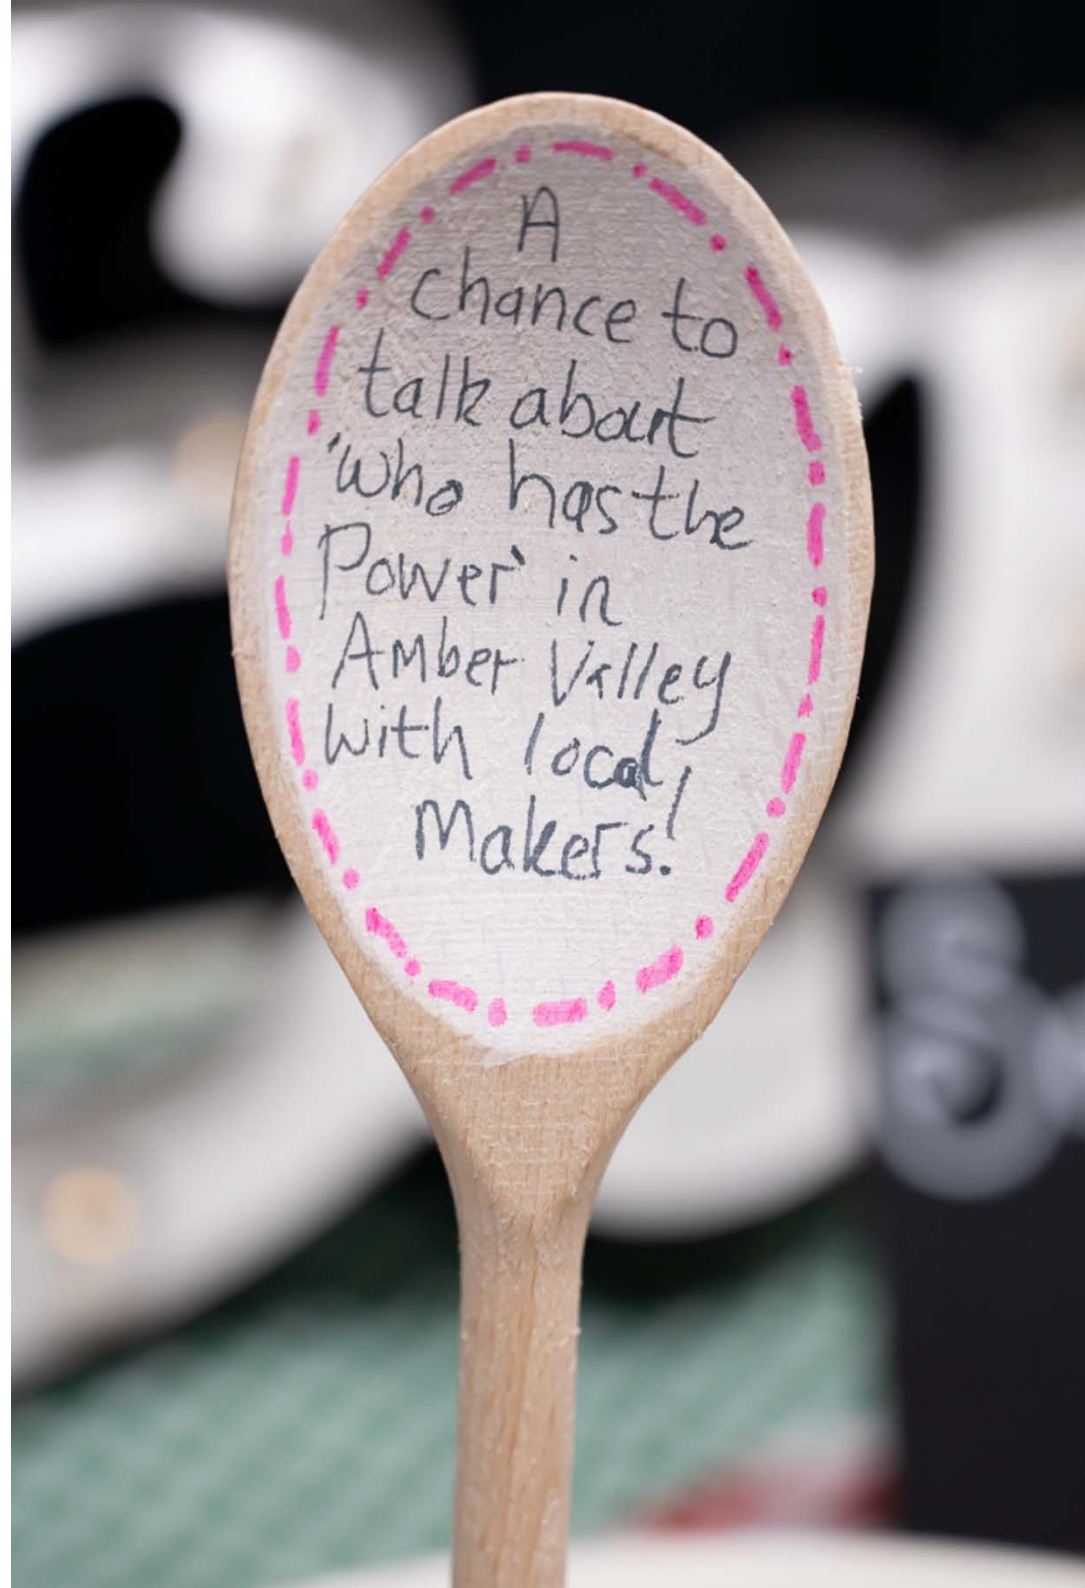 A
chance to
talk about
'who has the
Power' in
Amber Valley
with local
Makers!